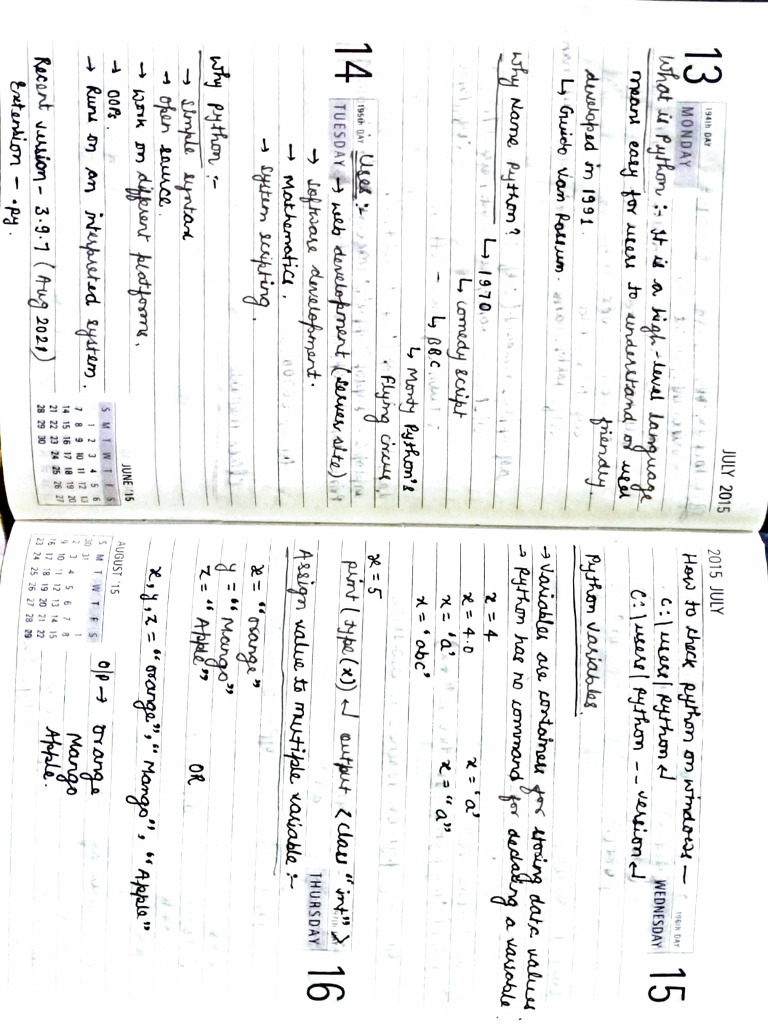 JULY 2015
13 194th DAY MONDAY
What is Python :- It is a high-level language
meant easy for users to understand or user
friendly.
developed in 1991.
↳ Guido Van Rossum.
Why Name Python?
↳ 1970.
↳ comedy script
- ↳ BBC
↳ Monty Python's
Flying circus
14 195th DAY TUESDAY
Uses :-
→ web development (server site)
→ software development.
→ Mathematics.
→ System scripting.
Why python :-
→ simple syntax
→ open source.
→ work on different platforms.
→ OOPs.
→ Runs on an interpreted system.
Recent version - 3.9.7 (Aug 2021)
Extention - .py.
JUNE '15
S M T W T F S
1 2 3 4 5 6
7 8 9 10 11 12 13
14 15 16 17 18 19 20
21 22 23 24 25 26 27
28 29 30
2015 JULY
196th DAY WEDNESDAY 15
How to check python on windows -
C:\users\python↵
C:\users\python --version↵
Python Variables.
→ Variables are containers for storing data values
→ Python has no command for declaring a variable.
x = 4
x = 4.0 x = 'a'
x = 'a' x = "a"
x = 'abc'
x = 5
print(type(x)) ↵ output <class "int">
THURSDAY 16
Assign value to multiple variable :-
x = "orange"
y = "Mango"
z = "Apple"
OR
x, y, z = "orange", "Mango", "Apple"
O/P → orange
Mango
Apple.
AUGUST '15
S M T W T F S
30 31 1
2 3 4 5 6 7 8
9 10 11 12 13 14 15
16 17 18 19 20 21 22
23 24 25 26 27 28 29